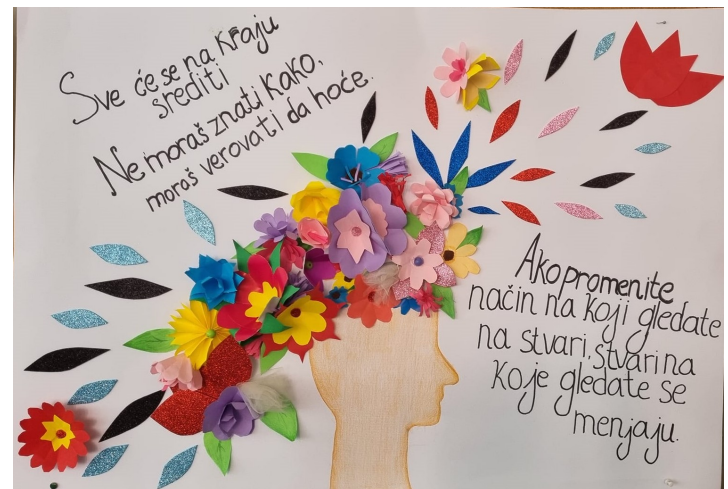 Sve će se na kraju
srediti
Ne moraš znati kako,
moraš verovati da hoće.
Ako promenite
način na koji gledate
na stvari, stvari na
koje gledate se
menjaju.